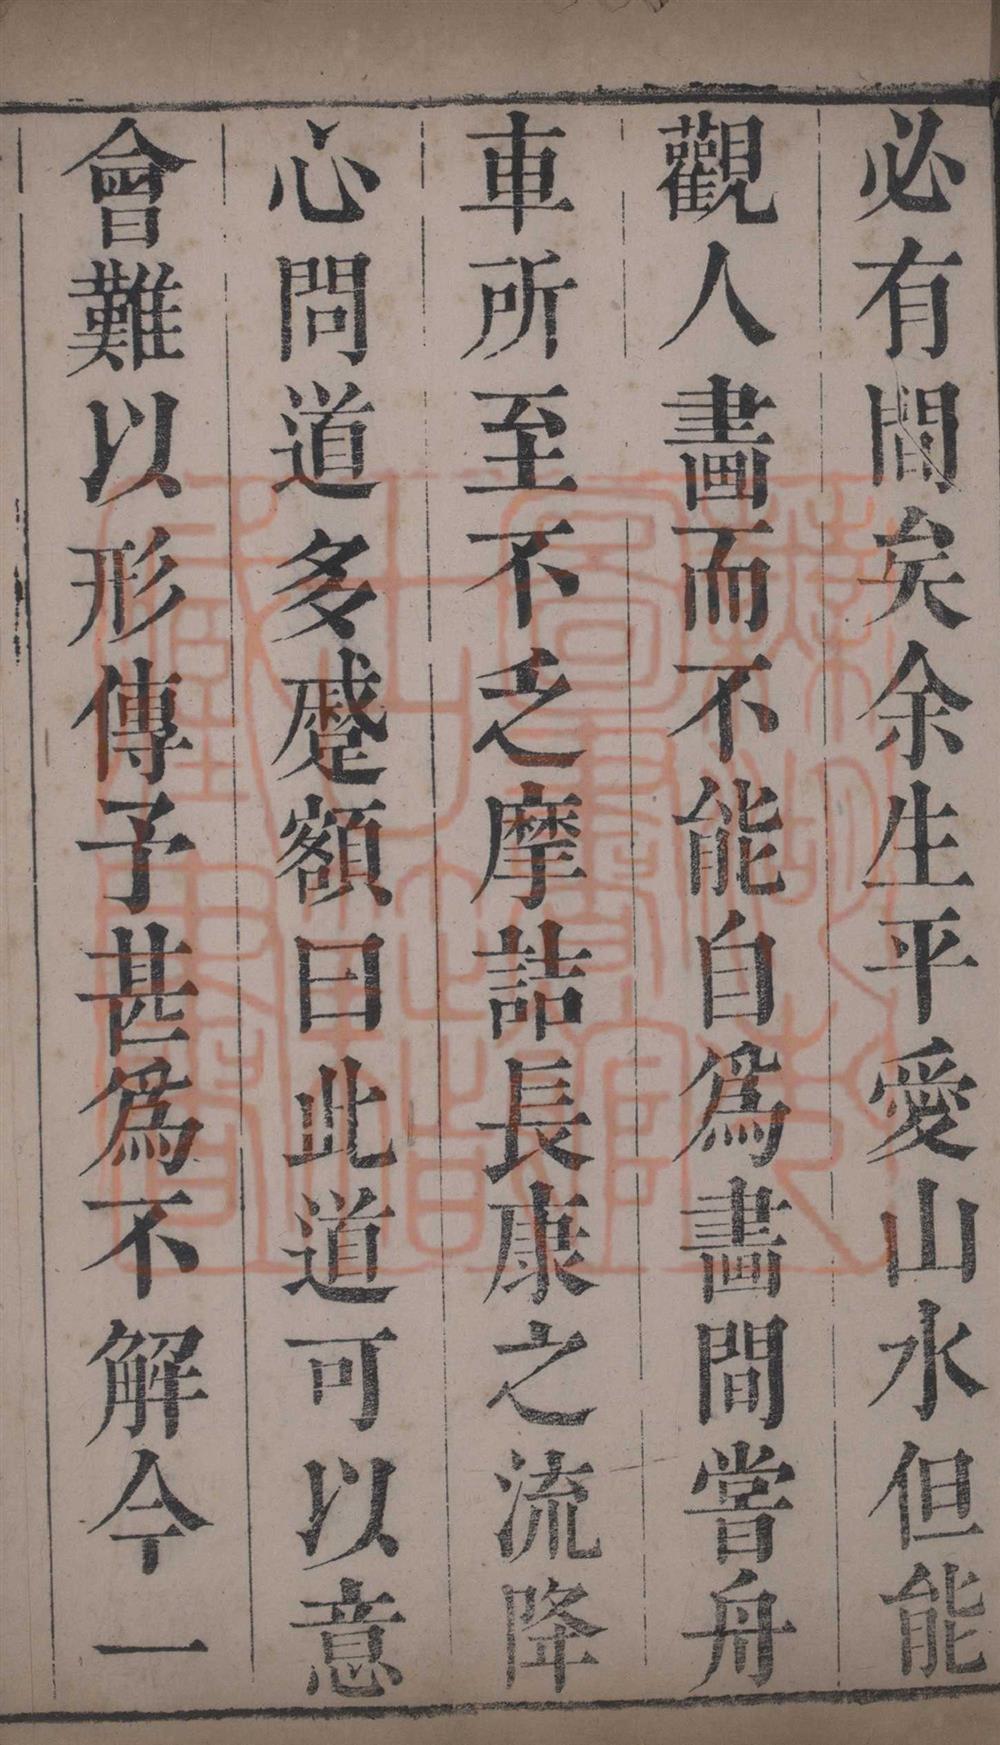 必有間矣余生平愛山水但能
觀人畫而不能自爲畫間嘗舟
車所至不乏摩詰長康之流降
心問道多蹙額曰此道可以意
會難以形傳予甚爲不解今一